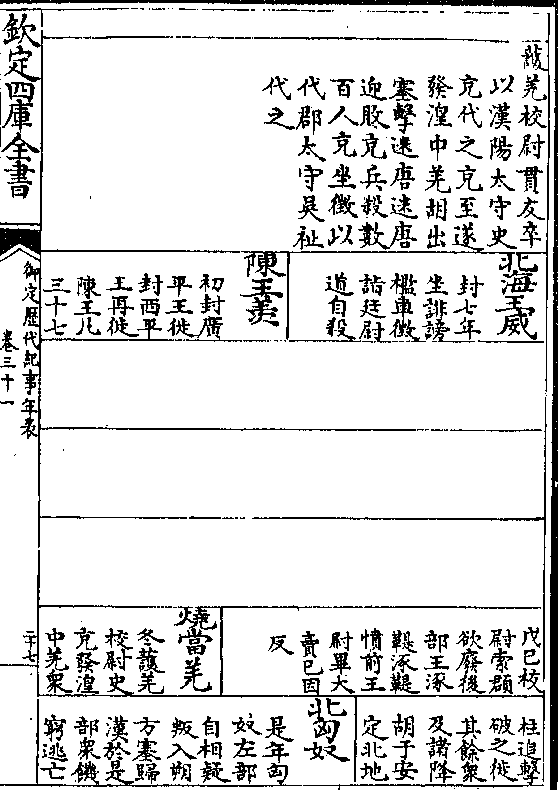 䕶羌校尉貫友卒
以漢陽太守史
充代之充至遂
發湟中羌胡出
塞擊迷唐迷唐
迎敗充兵殺數
百人充坐徵以
代郡太守吳祉
代之
北海王威
封七年
坐誹謗
檻車徵
詣廷尉
道自殺
陳王羨
初封廣
平王徙
封西平
王再徙
陳王凡
三十七
戊已校
尉索頵
欲廢後
部王涿
鞮涿鞮
憤前王
尉畢大
賣已因
反
燒當羌
冬護羌
校尉史
充發湟
中羌衆
柱追擊
破之徙
其餘衆
及諸降
胡子安
定北地
北匈奴
是年匈
奴左部
自相疑
叛入朔
方塞歸
漢於是
部衆饑
窮逃亡
欽定四庫全書
御定歴代紀事年表
卷三十一
二十七